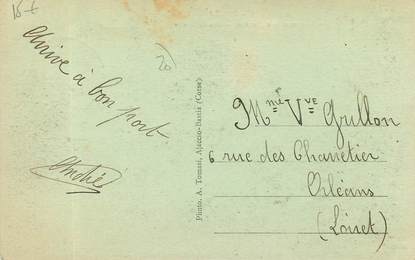 15 f
20
Arrive à bon port
André
Photo. A. Tomasi, Ajaccio-Bastia (Corse)
Mme Vve Grillon
6 rue des Charretier
Orléans
(Loiret)